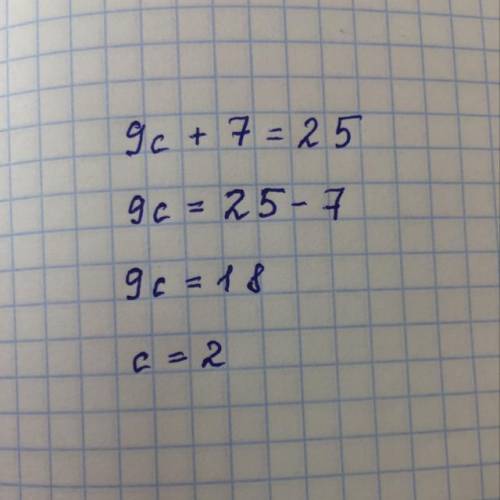 9c + 7 = 25
9c = 25 - 7
9c = 18
c = 2